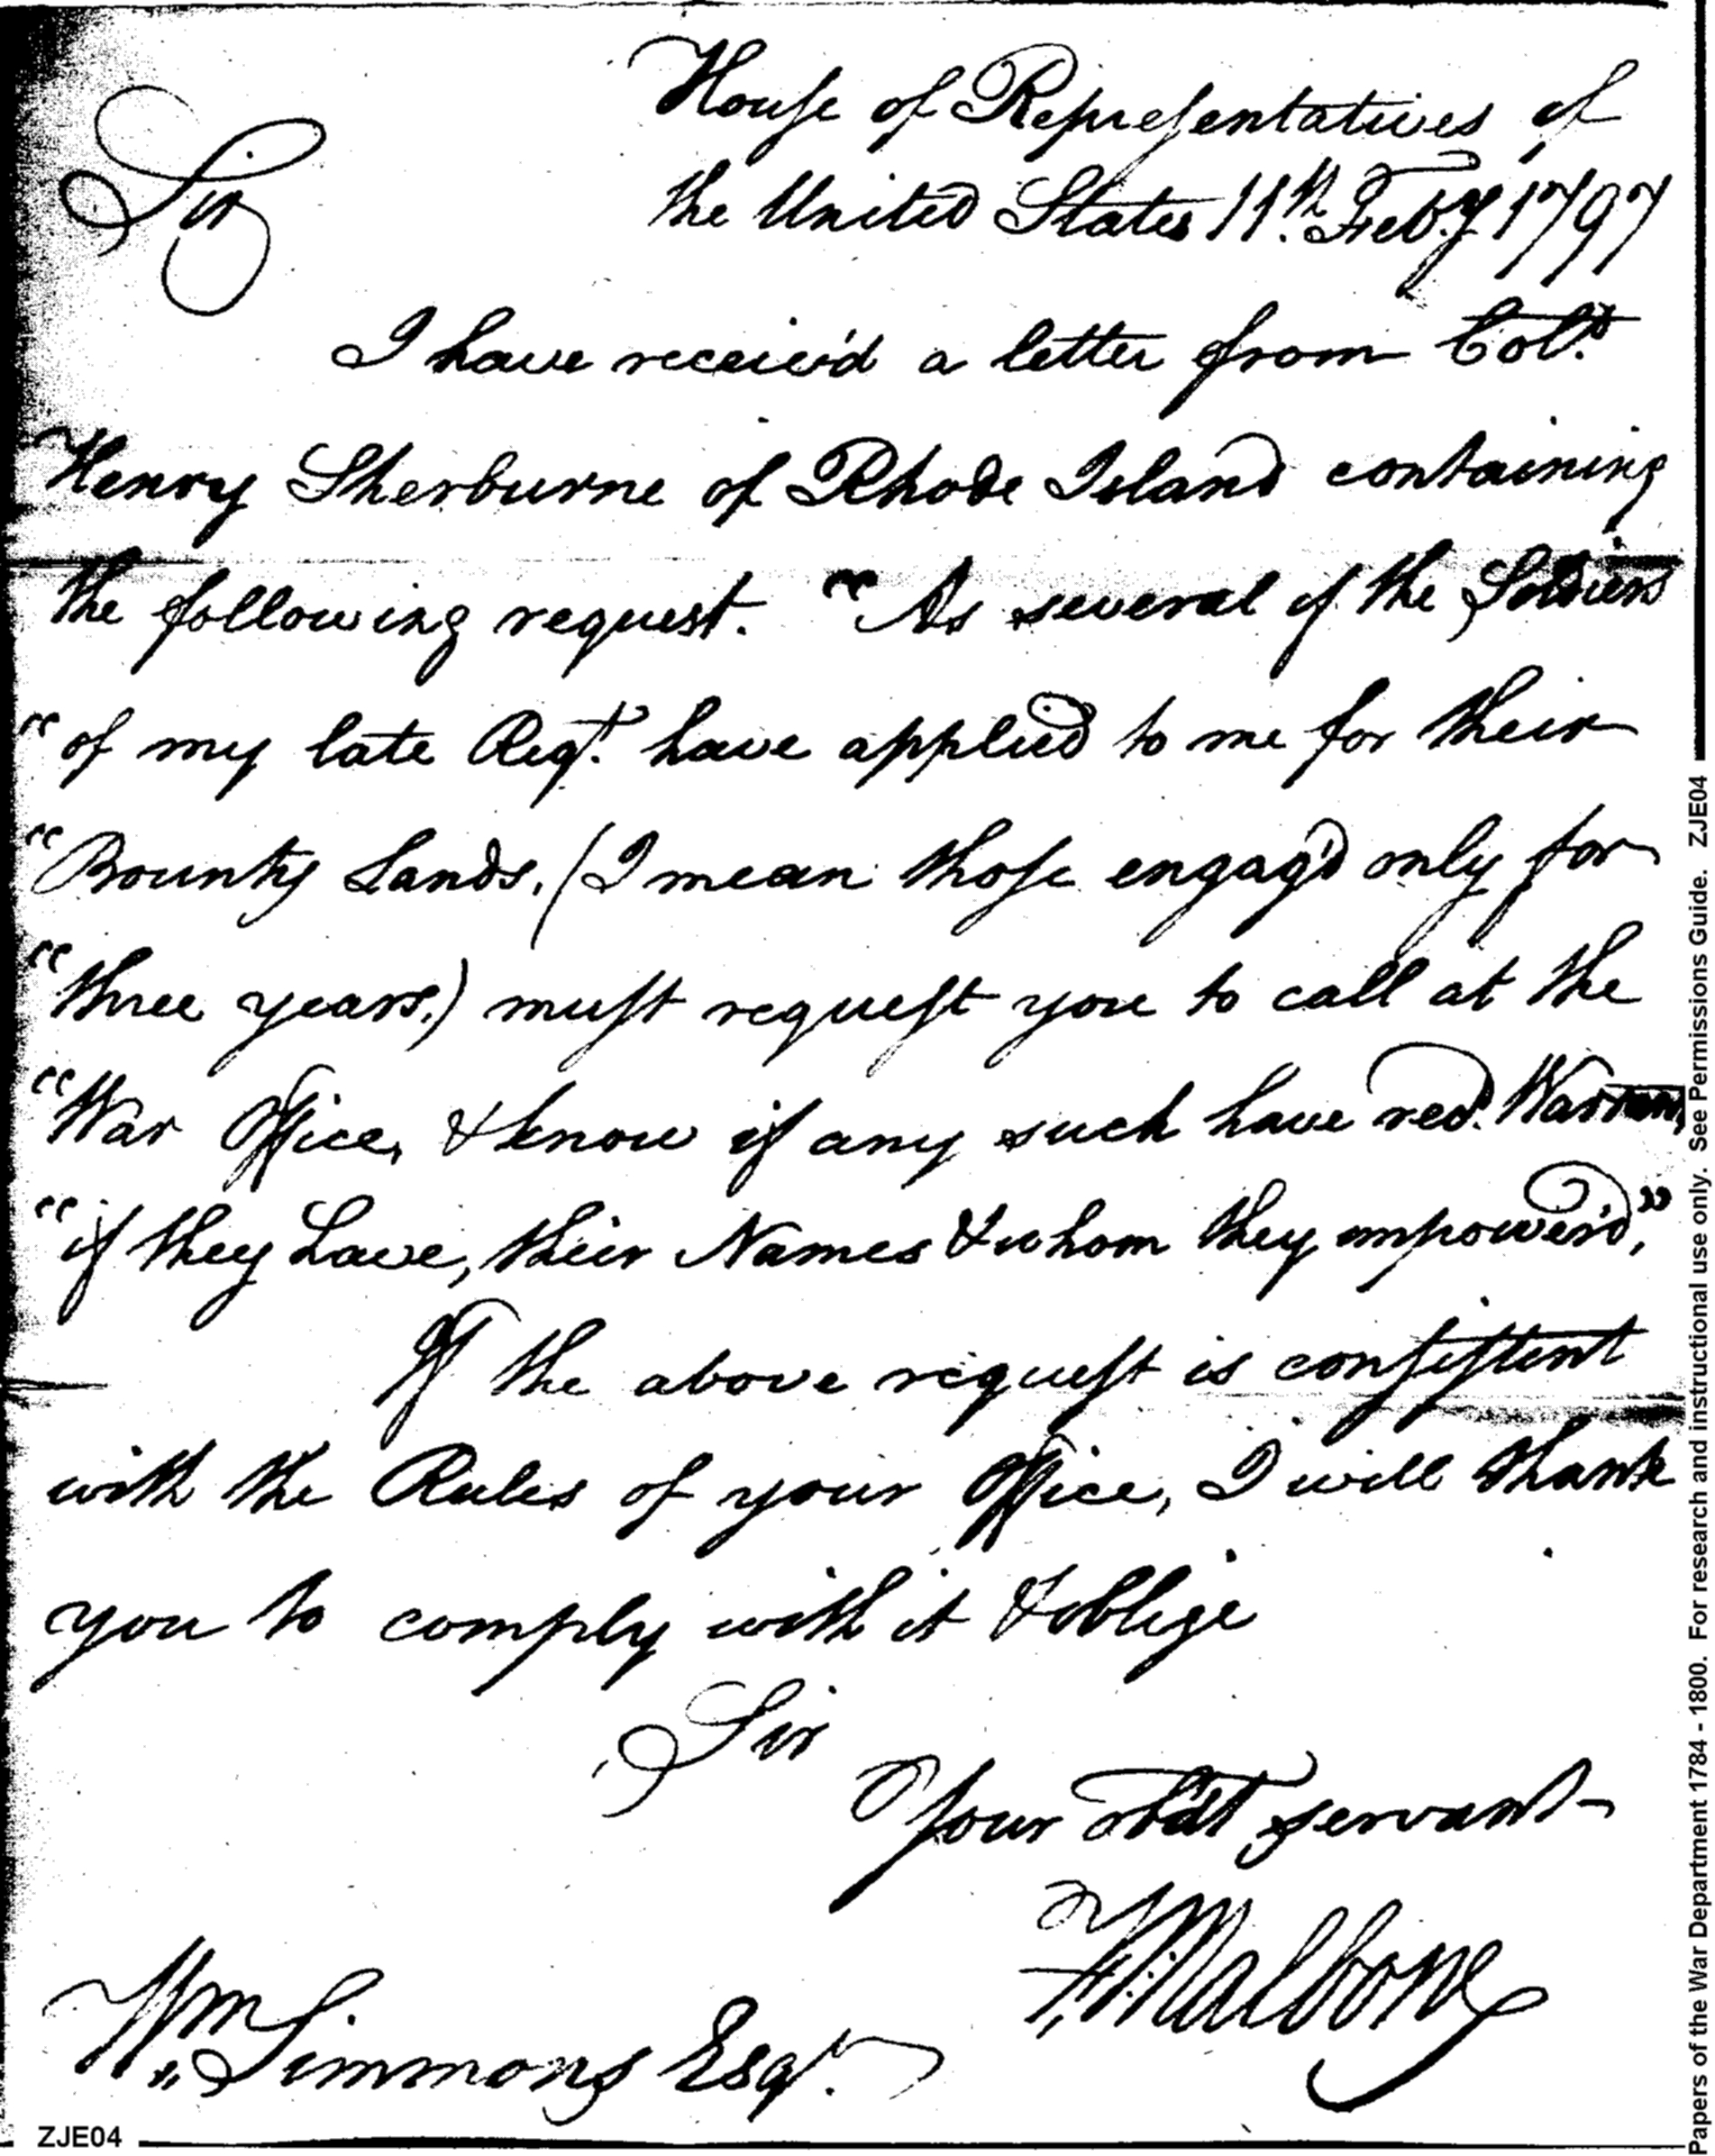 House of Representatives of
the United States 11th. Feby 1797
Sir
I have receiv'd a letter from Colo.
Henry Sherburne of Rhode Island containing
the following request. "As several of the Soldiers
"of my late Regt. have applied to me for their
"Bounty Lands, (I mean those engag'd only for
"three years,) must request you to call at the
"War Office, & know if any such have recd.
"if they have, their Names & whom they empower'd,"
If the above request is consistent
with the Rules of your Office, I will thank
you to comply with it & oblige
Sir
Your obdt servant
F. Malbone
Wm. Simmons Esqr.
ZJE04
Papers of the War Department 1784 - 1800. For research and instructional use only. See Permissions Guide. ZJE04